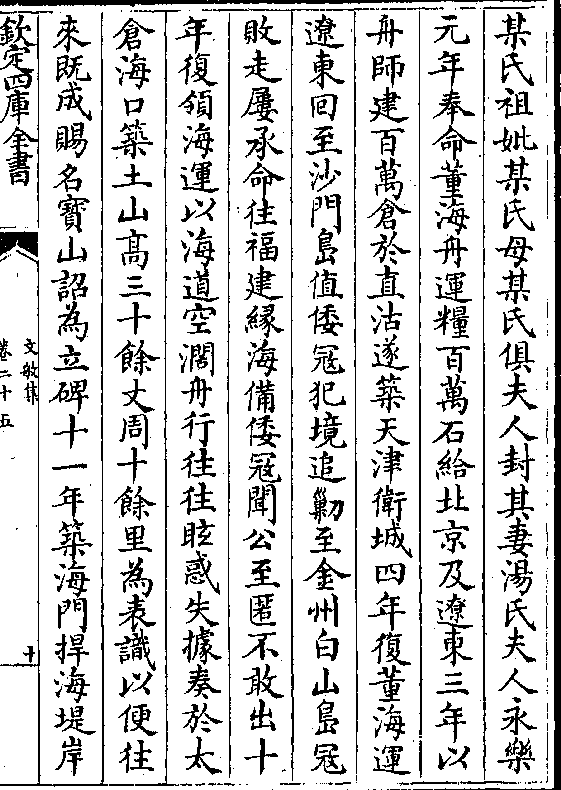 某氏祖妣某氏母某氏俱夫人封其妻湯氏夫人永樂
元年奉命董海舟運糧百萬石給北京及遼東三年以
舟師建百萬倉於直沽遂築天津衛城四年復董海運
遼東回至沙門島值倭冦犯境追勦至金州白山島冦
敗走屢承命往福建緣海備倭冦聞公至匿不敢出十
年復領海運以海道空濶舟行往往眩惑失據奏於太
倉海口築土山髙三十餘丈周十餘里為表識以便往
來既成賜名寶山詔為立碑十一年築海門捍海堤岸
欽定四庫全書
文敏集
卷二十五
十